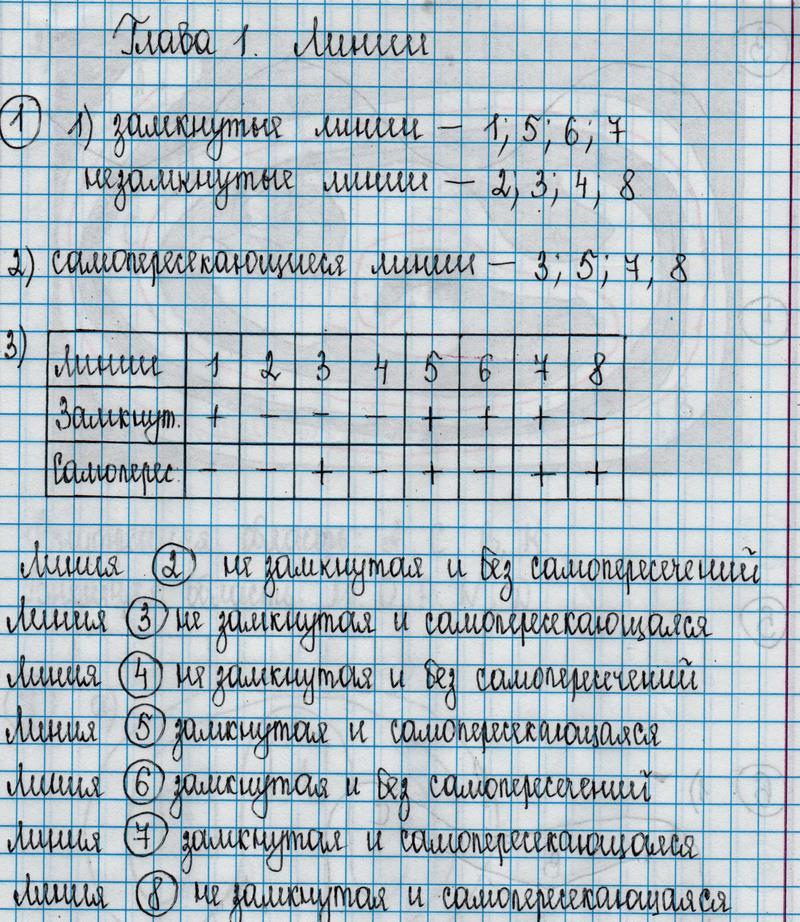 Глава 1. Линии
1 1) замкнутые линии – 1; 5; 6; 7
незамкнутые линии – 2; 3; 4; 8
2) самопересекающиеся линии – 3; 5; 7; 8
3)
Линии 1 2 3 4 5 6 7 8
Замкнут. + – – – + + + –
Самоперес. – – + – + – + +
Линия 2 не замкнутая и без самопересечений
Линия 3 не замкнутая и самопересекающаяся
Линия 4 не замкнутая и без самопересечений
Линия 5 замкнутая и самопересекающаяся
Линия 6 замкнутая и без самопересечений
Линия 7 замкнутая и самопересекающаяся
Линия 8 не замкнутая и самопересекающаяся